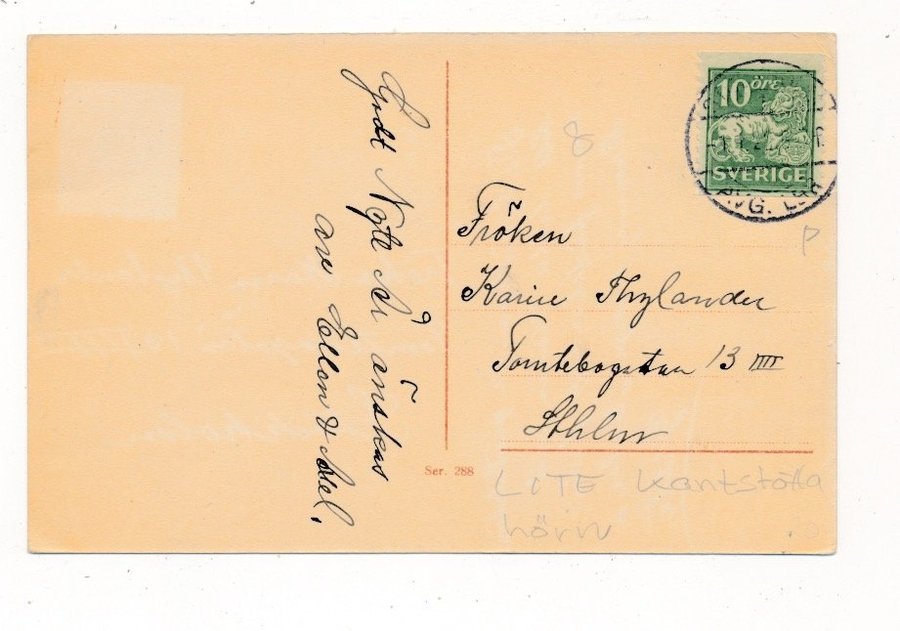 Godt Nytt År önskas
av Ellon & Axel.
10 öre
SVERIGE
AVG. LBR
8
P
Fröken
Karin Thylander
Tomtebogatan 13 IIII
Sthlm
Ser. 288
LITE kantstötta
hörn